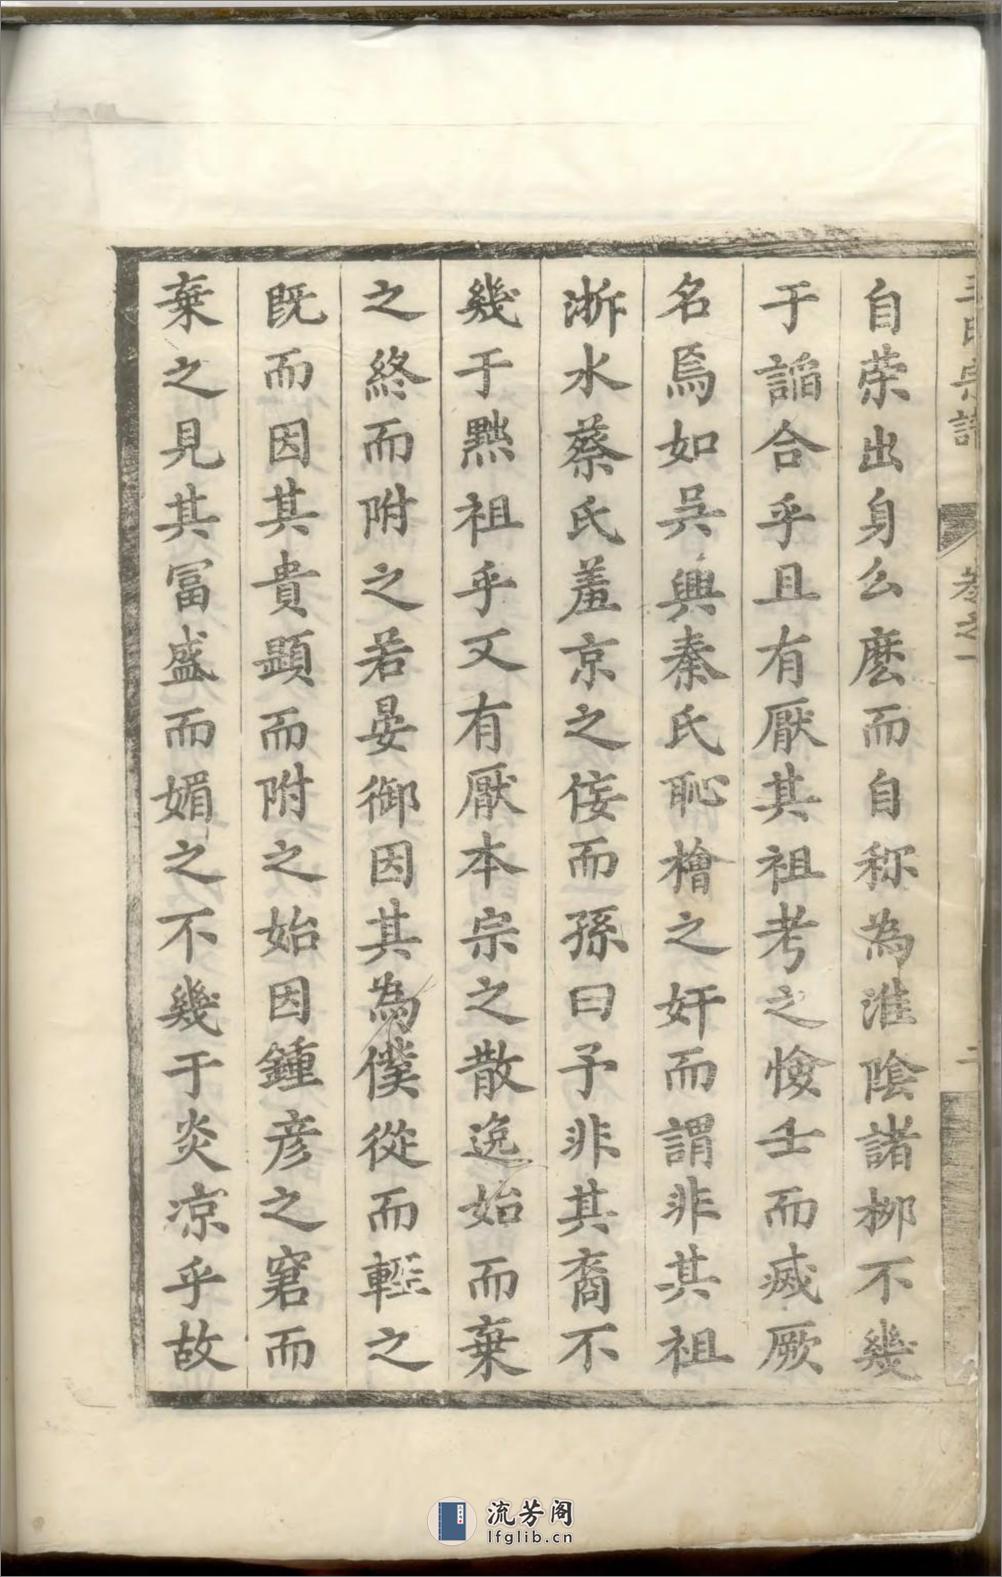 自荣出身么麽而自称為淮陰諸栁不幾
于謟合乎且有厭其祖考之憸壬而㓕厥
名焉如吴興秦氏恥檜之奸而謂非其祖
浙水蔡氏羞京之侫而孫曰予非其裔不
幾于黙祖乎又有厭本宗之散逸始而棄
之終而附之若晏御因其為僕從而輕之
既而因其貴顕而附之始因鍾彦之窘而
棄之見其冨盛而媚之不幾于炎凉乎故
卷之一
二
流芳阁
lfglib.cn